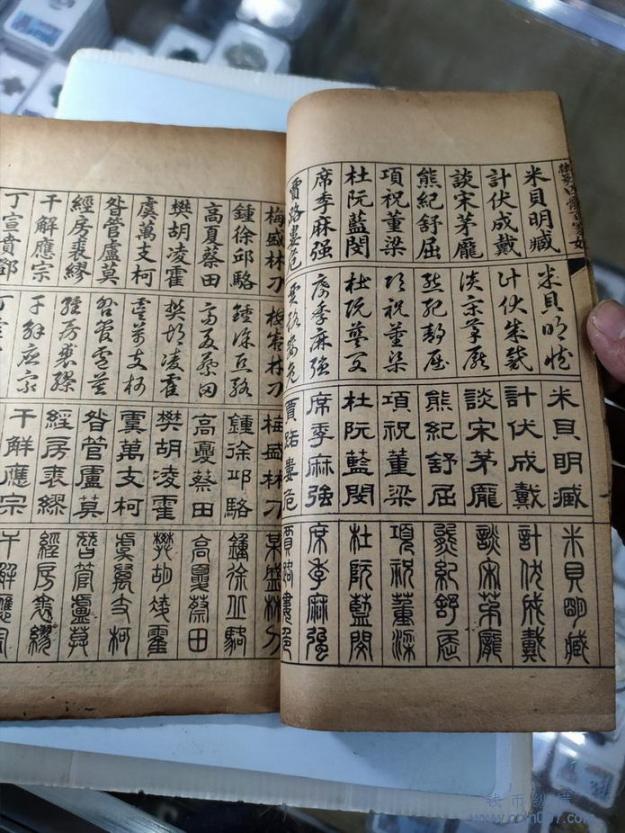 米貝明臧
計伏成戴
談宋茅龐
熊紀舒屈
項祝董梁
杜阮藍閔
席季麻强
賈路婁危
米貝明臧
計伏成戴
談宋茅龐
熊紀舒屈
項祝董梁
杜阮藍閔
席季麻强
賈路婁危
米貝明臧
計伏成戴
談宋茅龐
熊紀舒屈
項祝董梁
杜阮藍閔
席季麻強
賈路婁危
米貝明臧
計伏成戴
談宋茅龐
熊紀舒屈
項祝董梁
杜阮藍閔
席季麻强
賈路婁危
梅盛林刁
鍾徐邱駱
高夏蔡田
樊胡凌霍
虞萬支柯
昝管盧莫
經房裘繆
干解應宗
丁宣賁鄧
梅盛林刁
鍾徐邱駱
高夏蔡田
樊胡凌霍
虞萬支柯
昝管盧莫
經房裘繆
干解應宗
梅盛林刁
鍾徐邱駱
高夏蔡田
樊胡凌霍
虞萬支柯
昝管盧莫
經房裘繆
干解應宗
某盛林刁
鍾徐丘駱
高夏蔡田
樊胡凌霍
虞萬支柯
昝管盧莫
經房裘繆
干解應宗